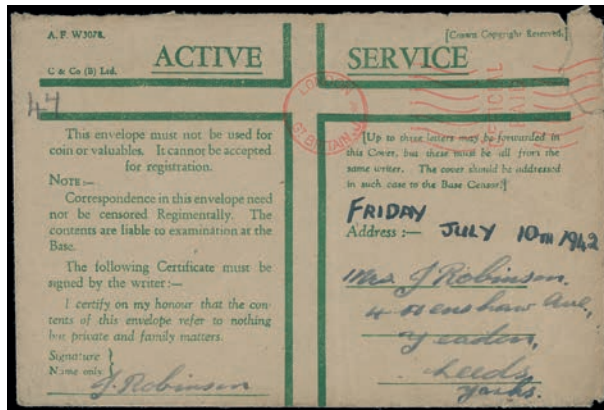 A. F. W3078.
[Crown Copyright Reserved.]
C & Co (B) Ltd.
ACTIVE SERVICE
44
LONDON
GT BRITAIN
OFFICIAL
PAID
This envelope must not be used for
coin or valuables. It cannot be accepted
for registration.
NOTE :—
Correspondence in this envelope need
not be censored Regimentally. The
contents are liable to examination at the
Base.
The following Certificate must be
signed by the writer :—
I certify on my honour that the con-
tents of this envelope refer to nothing
but private and family matters.
Signature }
Name only }
J. Robinson
[Up to three letters may be forwarded in
this Cover, but these must be all from the
same writer. The cover should be addressed
in such case to the Base Censor.]
FRIDAY
Address :— JULY 10TH 1942
Mrs J Robinson.
4 Henshaw Ave,
Yeadon,
Leeds
Yorks.